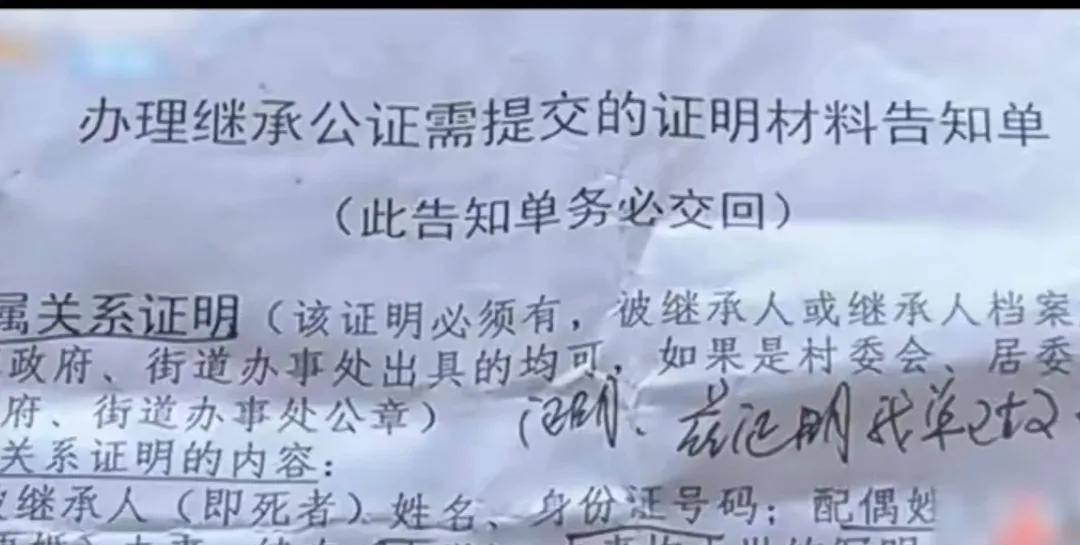 办理继承公证需提交的证明材料告知单
（此告知单务必交回）
属关系证明（该证明必须有，被继承人或继承人档案
政府、街道办事处出具的均可，如果是村委会、居委
府、街道办事处公章） 证明、兹证明我单
关系证明的内容：
继承人（即死者）姓名、身份证号码；配偶姓